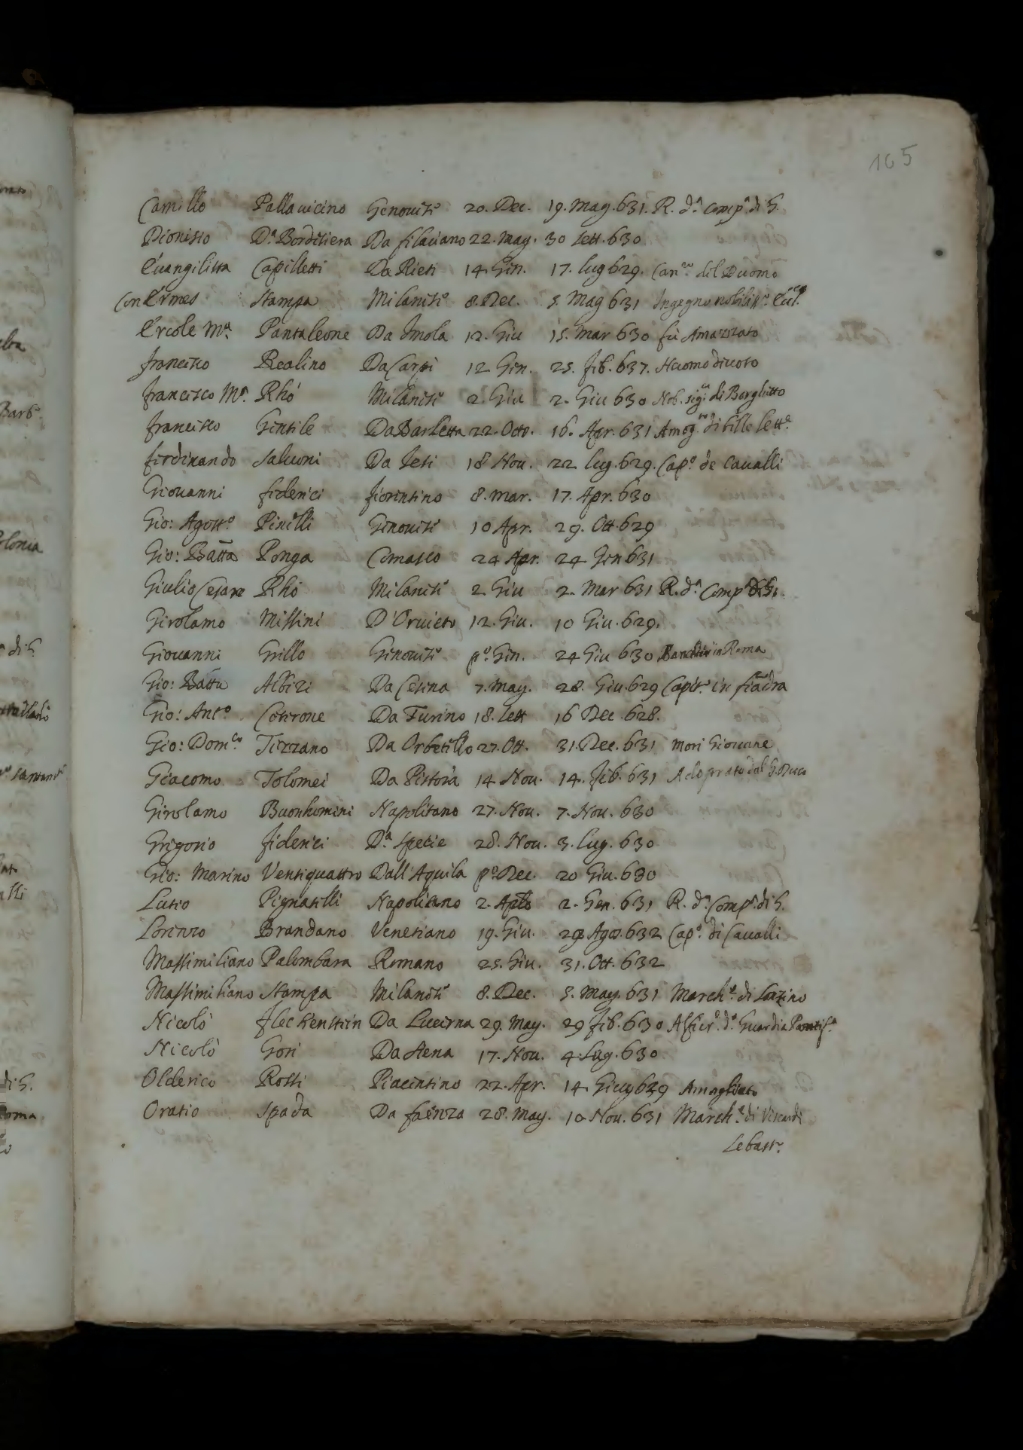 165
Camillo Pallauicino Genouese 20. Dec. 19. Mag. 631. R. d.ª Comp.ª di G.
Dionisio D.ª Bordisiera Da filaciano 22. May. 30 Sett. 630
Euangelista Capilletti Da Rieti 14. Gen. 17. lug 629. Can.co del Duomo
Con Ermes Stampa Milanese 8. Dec. 5. Mag 631 Ingegno nobiliss.º
Ercole M.ª Pantaleone Da Imola 12. Giu 15. Mar 630 fù Amazzato
francesco Realino Da Carpi 12 Gen. 25. feb. 637. Huomo diuoto
francesco M.ª Rhò Milanese 2. Giu 2. Giu 630 Nob. sig.re di Borghetto
francesco Gentile Da Barletta 22. Otto. 16. Apr. 631 di belle lett.e
ferdinando Saluoni Da Iesi 18 Nou. 22 lug. 629. Cap.º de Caualli
Giouanni federici fiorentino 8. mar. 17. Apr. 630
Gio: Agost.º Pinelli Genouese 10 Apr. 29. Ott. 629
Gio: Batta Ponga Comasco 24 Apr. 24 Gen 631
Giulio Cesare Rhò Milanese 2. Giu 2. Mar 631 R. d.ª Comp.ª di G.
Girolamo Missini D'Oruieto 12. Giu. 10 Giu. 629.
Giouanni Grillo Genouese p.º Gen. 24 Giu 630 in Roma
Gio: Batta Albizi Da Cesena 7. May. 28. Giu. 629 Capit.º in fiandra
Gio: Ant.º Cotrone Da Turino 18. Sett 16 Dec 628.
Gio: Dom.co Tizzano Da Orbetello 27. Ott. 31. Dec. 631 mori Giouane
Giacomo Tolomei Da Pistoia 14 Nou. 14. feb. 631 Adoprato dal G. Duca
Girolamo Buonhomini Napolitano 27. Nou. 7. Nou. 630
Grigorio federici D.ª Spetie 28. Nou. 3. Lug. 630
Gio: Marino Ventiquattro Dall'Aquila p.º Dec. 20 Giu. 630
Lutio Pignatelli Napolitano 2. Aple 2. Gen. 631 R. d.ª Comp.ª di G.
Lorenzo Brandano Venetiano 19. Giu. 29 Ago. 632 Cap.º di Caualli
Massimiliano Palombara Romano 25. Giu. 31. Ott. 632
Massimiliano Stampa Milanese 8. Dec. 5. May. 631 March.e di
Nicolò fleckenstein Da Lucerna 29. May. 29 feb. 630 Alfier.e d.ª Guardia Pontif.ª
Nicolò Gori Da Siena 17. Nou. 4 Lug. 630
Olderico Rossi Piacentino 22. Apr. 14. 629 Ammogliato
Oratio Spada Da faenza 28. May. 10 Nou. 631 March.e di
Sebast.º